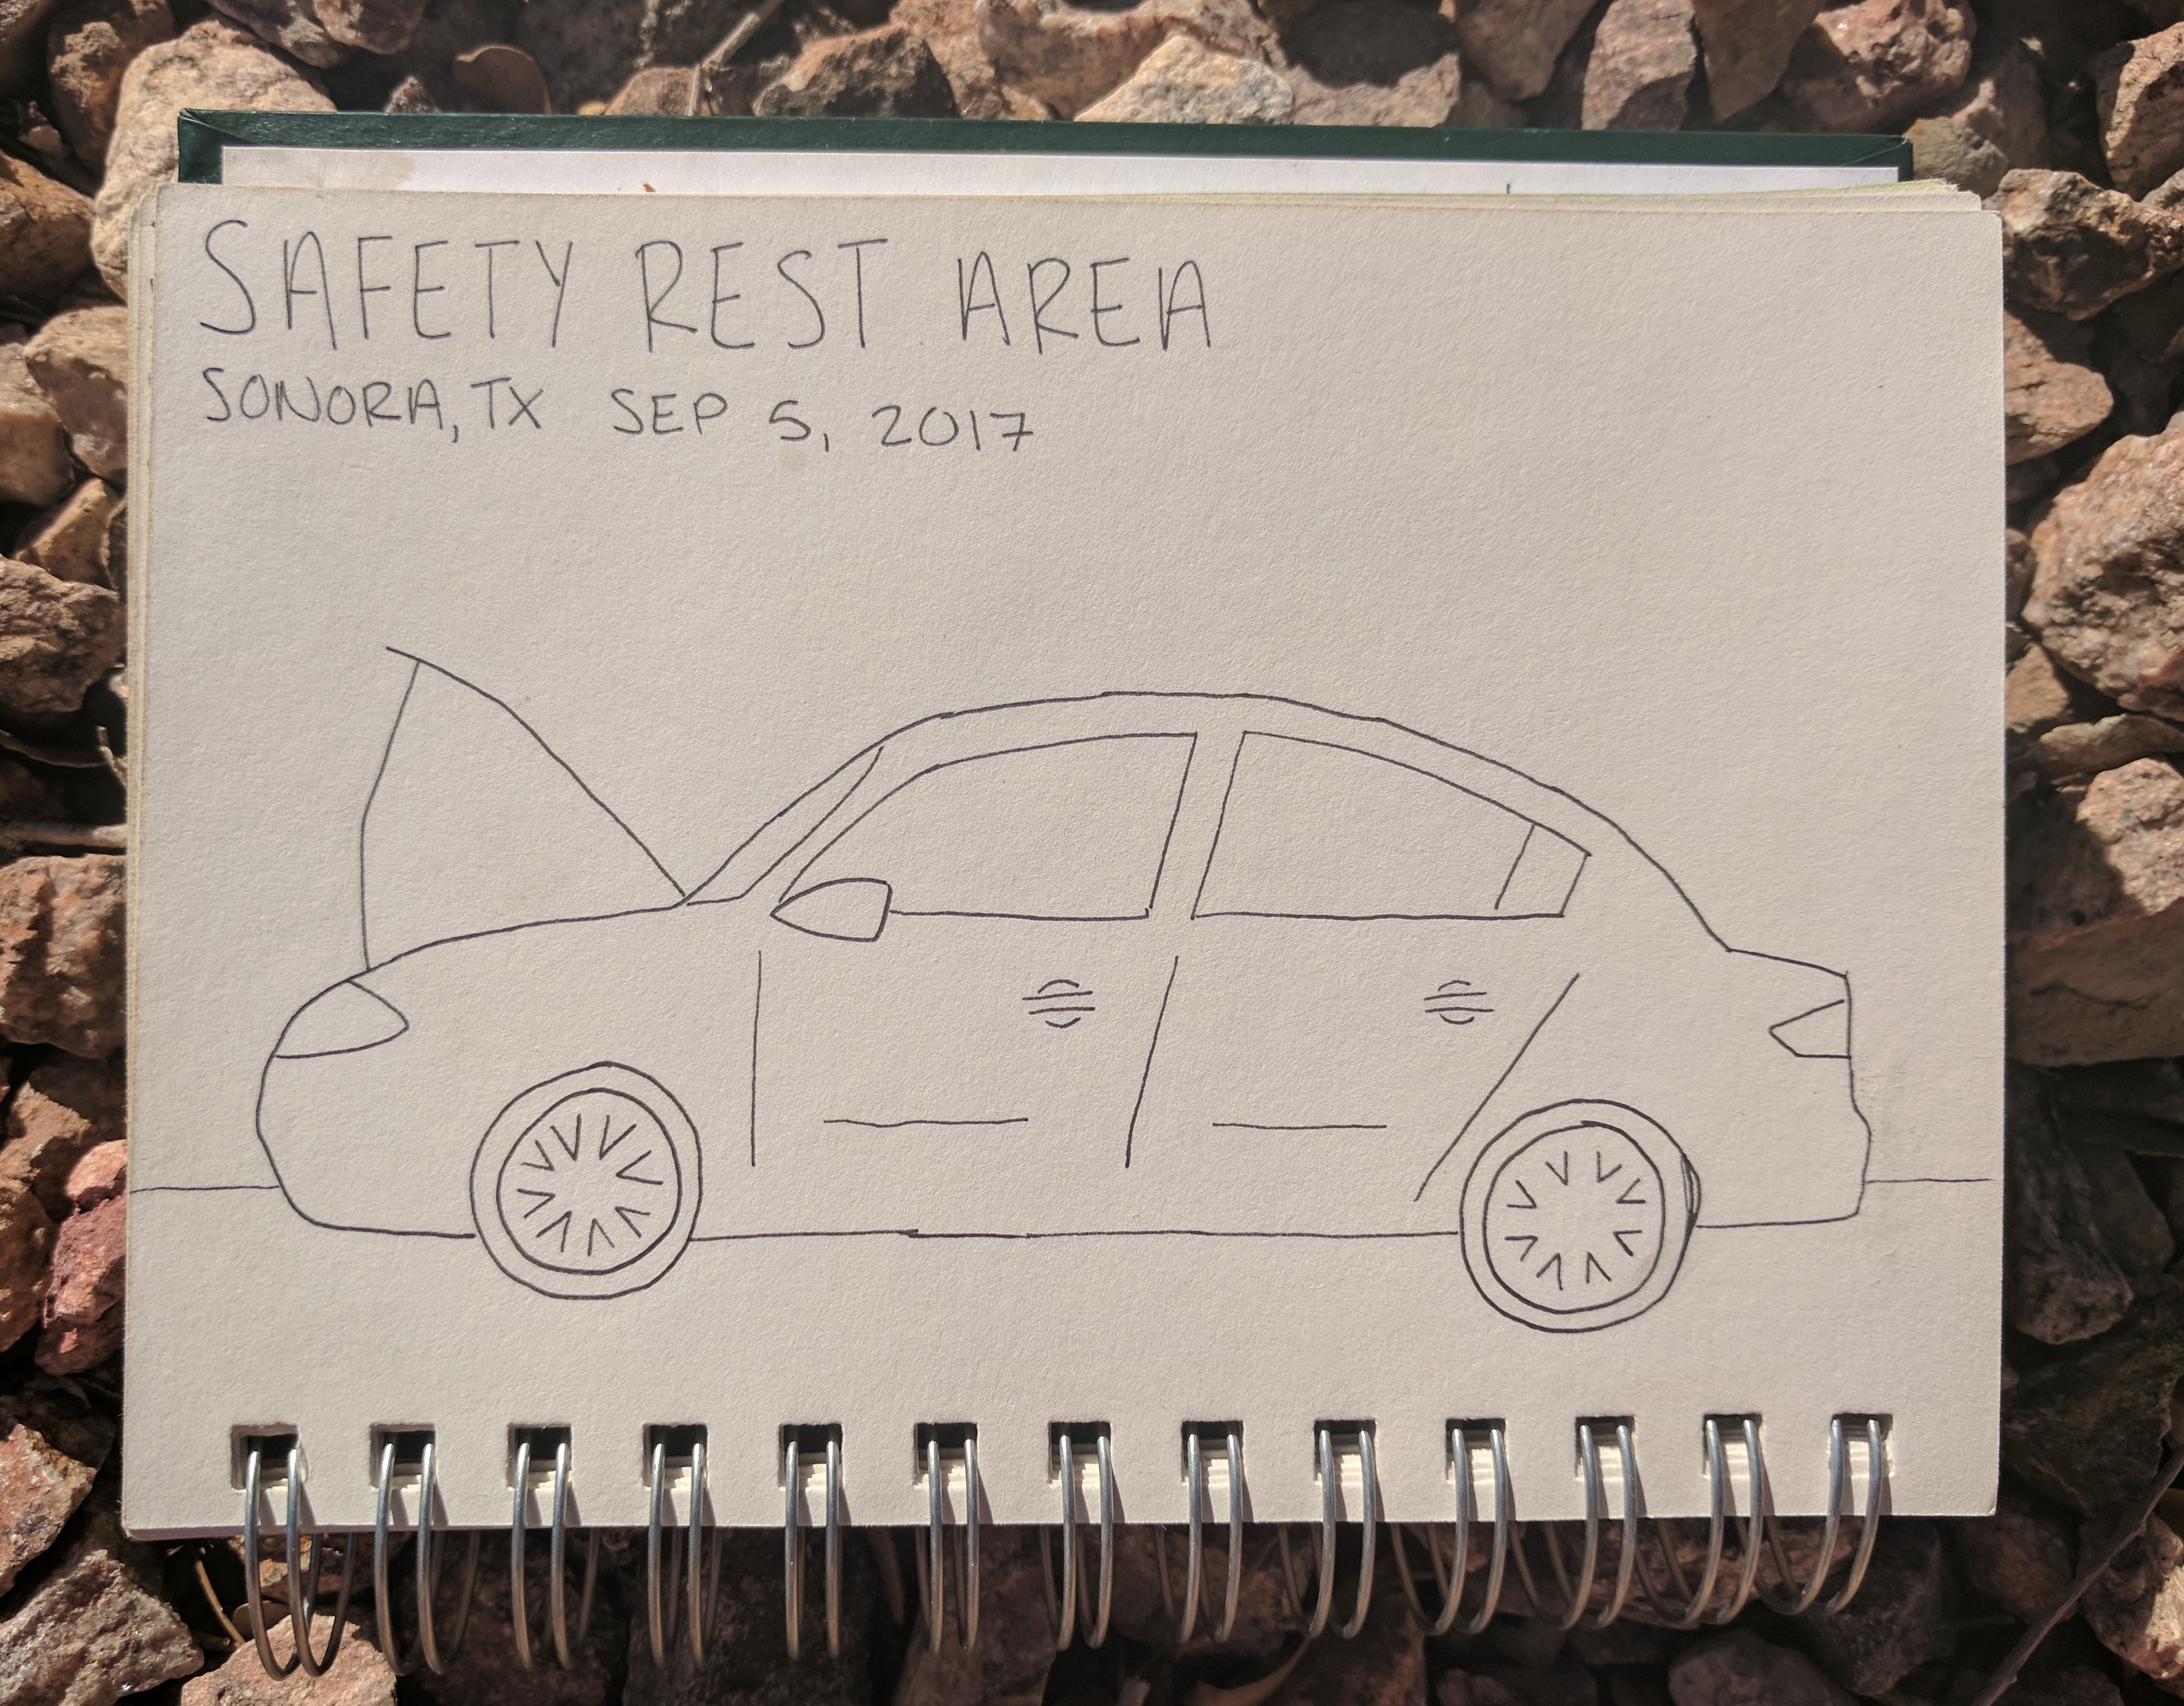 SAFETY REST AREA
SONORA, TX SEP 5, 2017